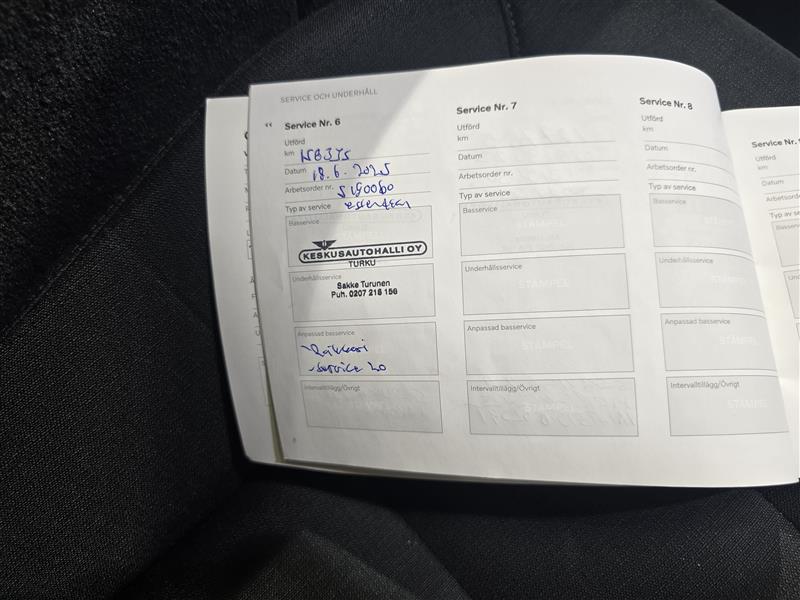 SERVICE OCH UNDERHÅLL
Service Nr. 6
Utförd
km
Datum 18.6.2025
Arbetsorder nr.
Typ av service
Basservice
KESKUSAUTOHALLI OY
TURKU
Underhållsservice
Sakke Turunen
Puh. 0207 218 156
Anpassad basservice
- Service 20
Intervalltillägg/Övrigt
Service Nr. 7
Utförd
km
Datum
Arbetsorder nr.
Typ av service
Basservice
Underhållsservice
STÄMPEL
Anpassad basservice
STÄMPEL
Intervalltillägg/Övrigt
STÄMPEL
Service Nr. 8
Utförd
km
Datum
Arbetsorder nr.
Typ av service
Basservice
STÄMPEL
Underhållsservice
STÄMPEL
Anpassad basservice
STÄMPEL
Intervalltillägg/Övrigt
STÄMPEL
Utförd
km
Datum
Typ av se